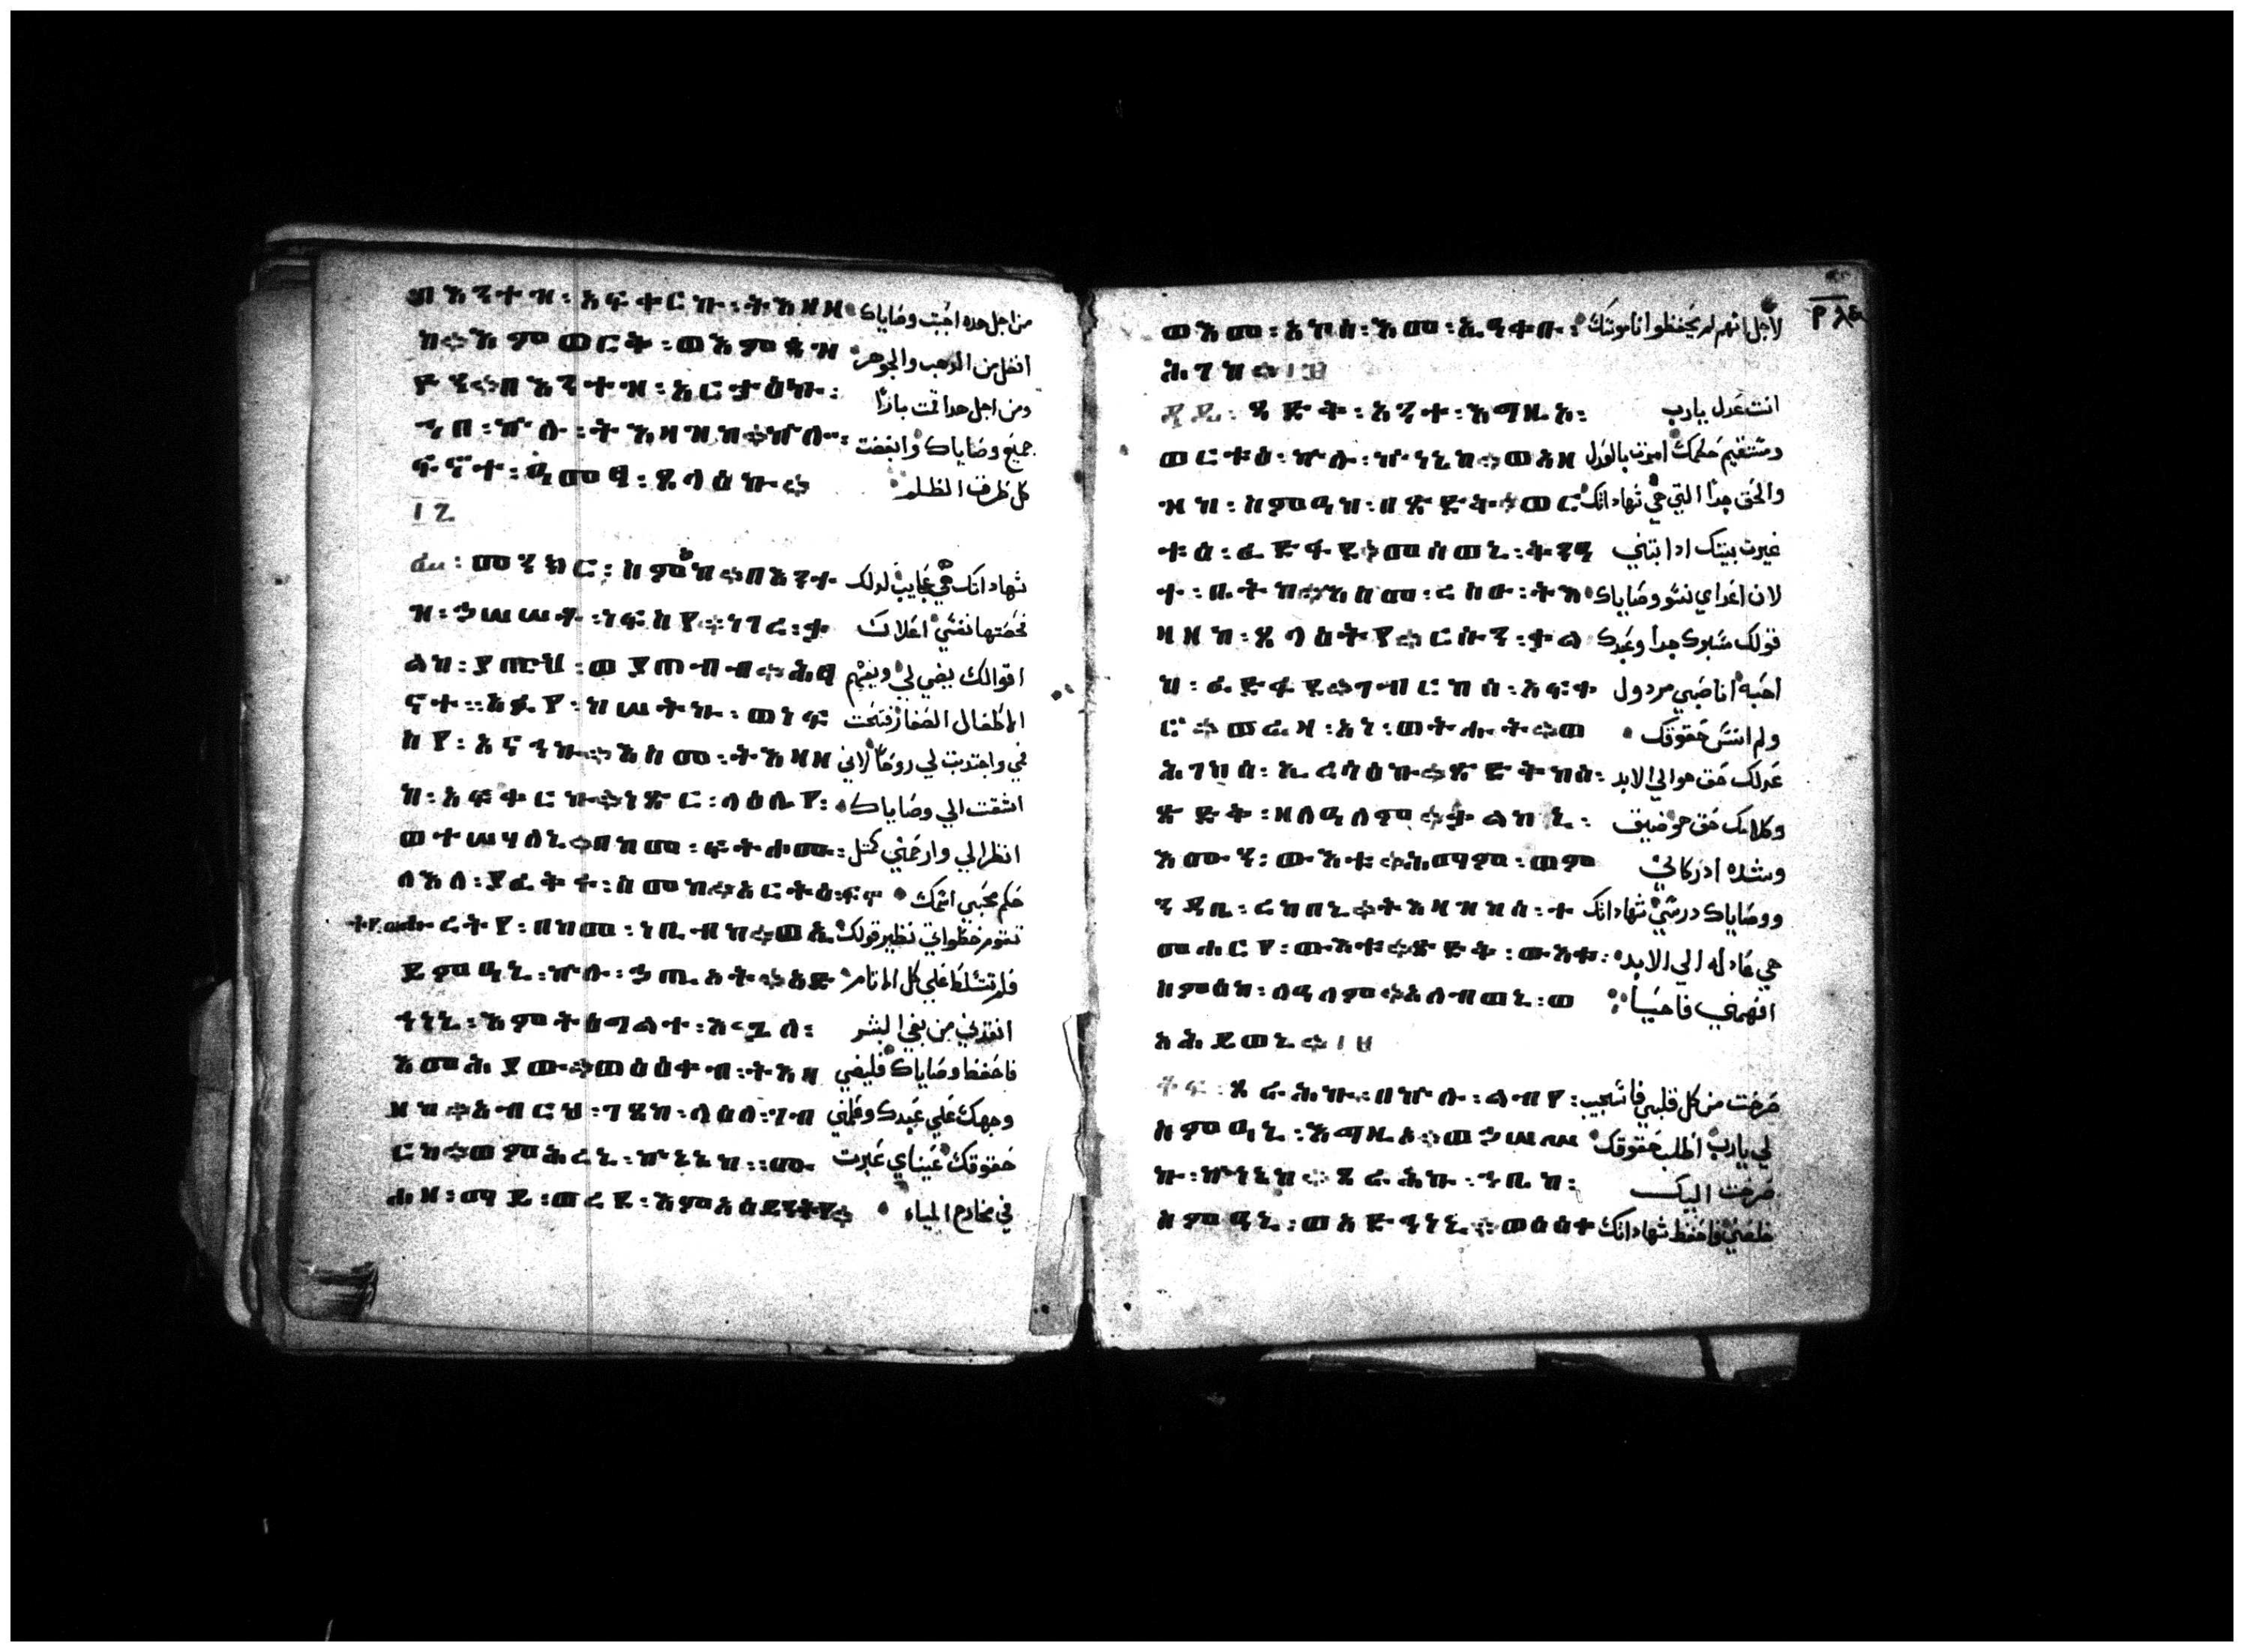 በእንተዝ፡ አፍቀርኩ፡ ትእዛዘ من اجل هده احببت وصاياك
ከ። እምወርቅ፡ ወእምጳዝ افضل من الدهب والجوهر
ዮን። በእንተዝ፡ አርታዕኩ፡ ومن اجل هدا قمت بارًا
ኀበ፡ ኵሉ፡ ትእዛዝከ። ኵሎ፡ جميع وصاياك وابغضت
ፍኖተ፡ ዓመፃ፡ ጸላዕኩ። كل طرق الظلم
፲፯
ፌ፡ መንክር፡ ስምዕከ። በእንተ شهاداتك هي عجايب لدلك
ዝ፡ ኀሠሠት፡ ነፍስየ። ነገረ፡ ቃ فحصتها نفسي اعلان
ልከ፡ ያበርህ፡ ወያጠብብ። ሕፃ اقوالك يضي لي ويفهم
ናተ። አፉየ፡ ከሠትኩ፡ ወነፍ الاطفال الصغار فتحت
ስየ፡ አናኅኩ። እስመ፡ ትእዛዘ في واجتدبت لي روحًا لاني
ከ፡ አፍቀርኩ። ነጽር፡ ላዕሌየ፡ اشتقت الي وصاياك
ወተሠሃለኒ። በከመ፡ ፍትሖሙ፡ انظر الي وارحمني كمثل
ለእለ፡ ያፈቅሩ፡ ስመከ። አርትዕ፡ حكم محبي اسمك
ረትየ፡ በከመ፡ ነቢብከ። ወኢ تقوم خطواتي نظير قولك
ይምዓኒ፡ ኵሉ፡ ኀጢአት። አድ فلا تتسلط علي كل الاثام
ኅነኒ፡ እምትዕግልተ፡ እጓለ፡ انقدني من بغي البشر
እመሕያው። ወዕዕቀብ፡ ትእዛ فاحفظ وصاياك فليضي
ዘከ። አብርህ፡ ገጸከ፡ ላዕለ፡ ገብ وجهك علي عبدك وعلمني
ርከ። ወምሕረኒ፡ ኵነኔከ። ሙ حقوقك عيناي عبرت
ሐዘ፡ ማይ፡ ወረደ፡ እምአዕይንትየ። في مخادع المياه
ወእመ፡ እለ፡ እመ፡ ኢዓቀቡ፡ لاجل انهم لم يحفظوا ناموسك
ሕገከ። ፲፰
ጻዴ፡ ጻድቅ፡ አንተ፡ እግዚአ፡ انت عدل يارب
ወርቱዕ፡ ኵሉ፡ ኵነኔከ። ወአዘ ومستقيم حكمك امرت بالعدل
ዝከ፡ ስምዓከ፡ በጽድቅ። ወር والحق جدًا التي هي شهاداتك
ቱዕ፡ ፈድፋደ። መሰወኒ፡ ቅንዓ غيرت بيتك ادابتني
ተ፡ ቤትከ። እስመ፡ ረስዑ፡ ትእ لان اعداي نسو وصاياك
ዛዘከ፡ ጸላዕትየ። ርሱን፡ ቃል قولك مسبوك جدا وعبدك
ከ፡ ፈድፋደ። ገብርከሰ፡ አፍቀ احبه انا صبي مردول
ሮ። ወሬዛ፡ አነ፡ ወትሑት። ወ ولم انسي حقوقك
ሕገከሰ፡ ኢረሳዕኩ። ጽድቅከሰ፡ عدلك حق هو الي الابد
ጽድቅ፡ ዘለዓለም። ቃልከኒ፡ وكلامك حق هو ضيق
እሙን፡ ውእቱ። ሕማም፡ ወም وشده ادركاني
ንዳቤ፡ ረከበኒ። ትእዛዝከሰ፡ ት ووصاياك درسي شهاداتك
መሐርየ፡ ውእቱ። ጽድቅ፡ ውእቱ፡ هي عادله الي الابد
ስምዕከ፡ ለዓለም። አለብወኒ፡ ወ افهمني فاحيا
አሕይወኒ። ፲፱
ቆፍ፡ ጸራሕኩ፡ በኵሉ፡ ልብየ፡ صرخت من كل قلبي فاستجيب
ስምዓኒ፡ እግዚአ። ወኀሠሥ لي يارب اطلب حقوقك
ኩ፡ ኵነኔከ። ጸራሕኩ፡ ኀቤከ፡ صرخت اليك
ስምዓኒ፡ ወአድኅነኒ። ወዕዕቀ خلصني فاحفظ شهاداتك